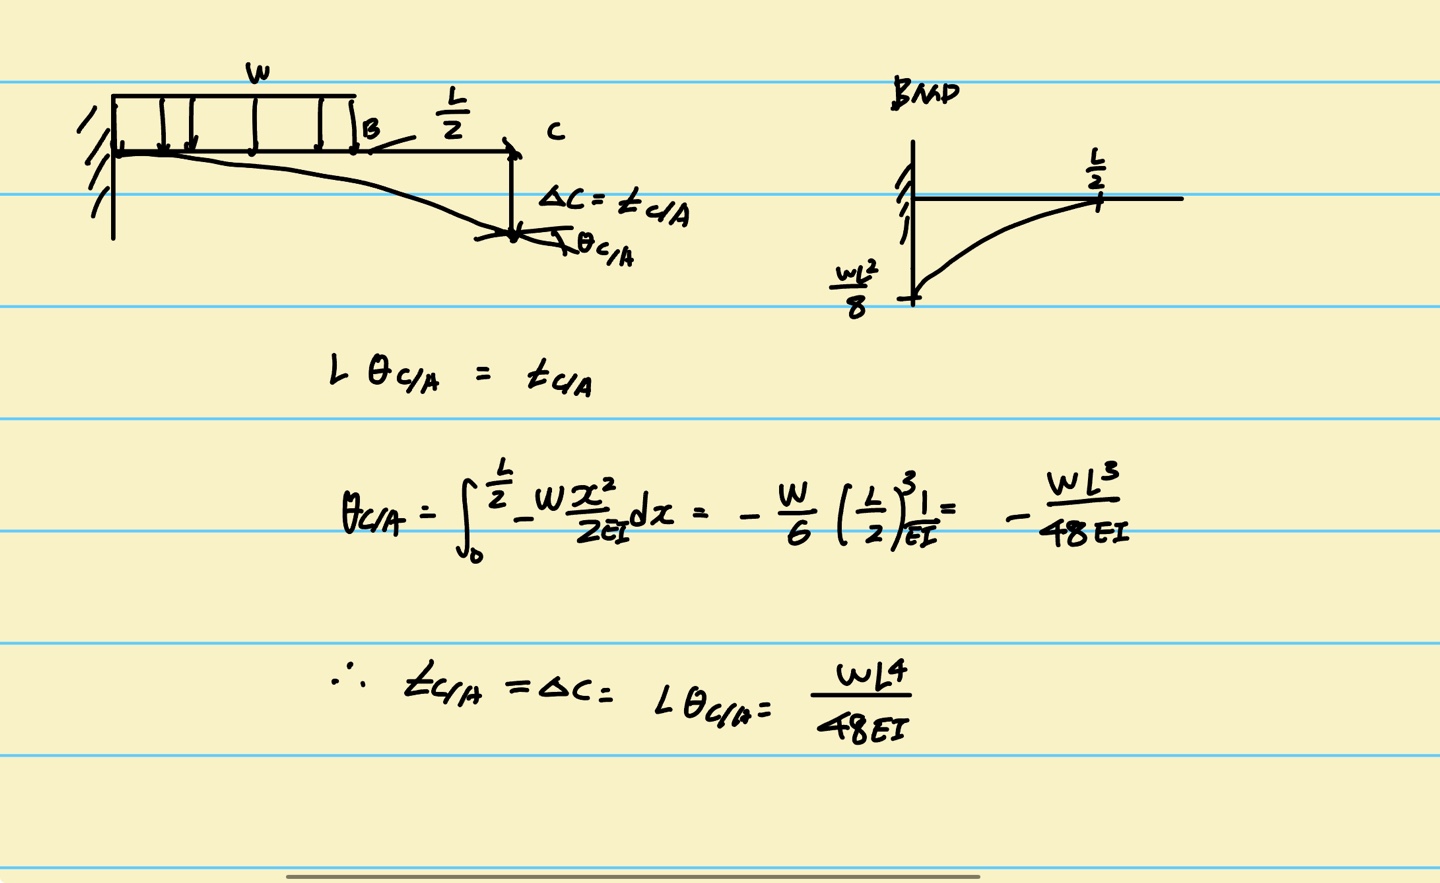 W
B
L/2
C
ΔC = t_{C/A}
θ_{C/A}
BMD
L/2
WL²/8
L θ_{C/A} = t_{C/A}
θ_{C/A} = ∫₀^{L/2} -Wx²/2EI dx = - W/6 (L/2)³ 1/EI = - WL³/48EI
∴ t_{C/A} = ΔC = L θ_{C/A} = WL⁴/48EI